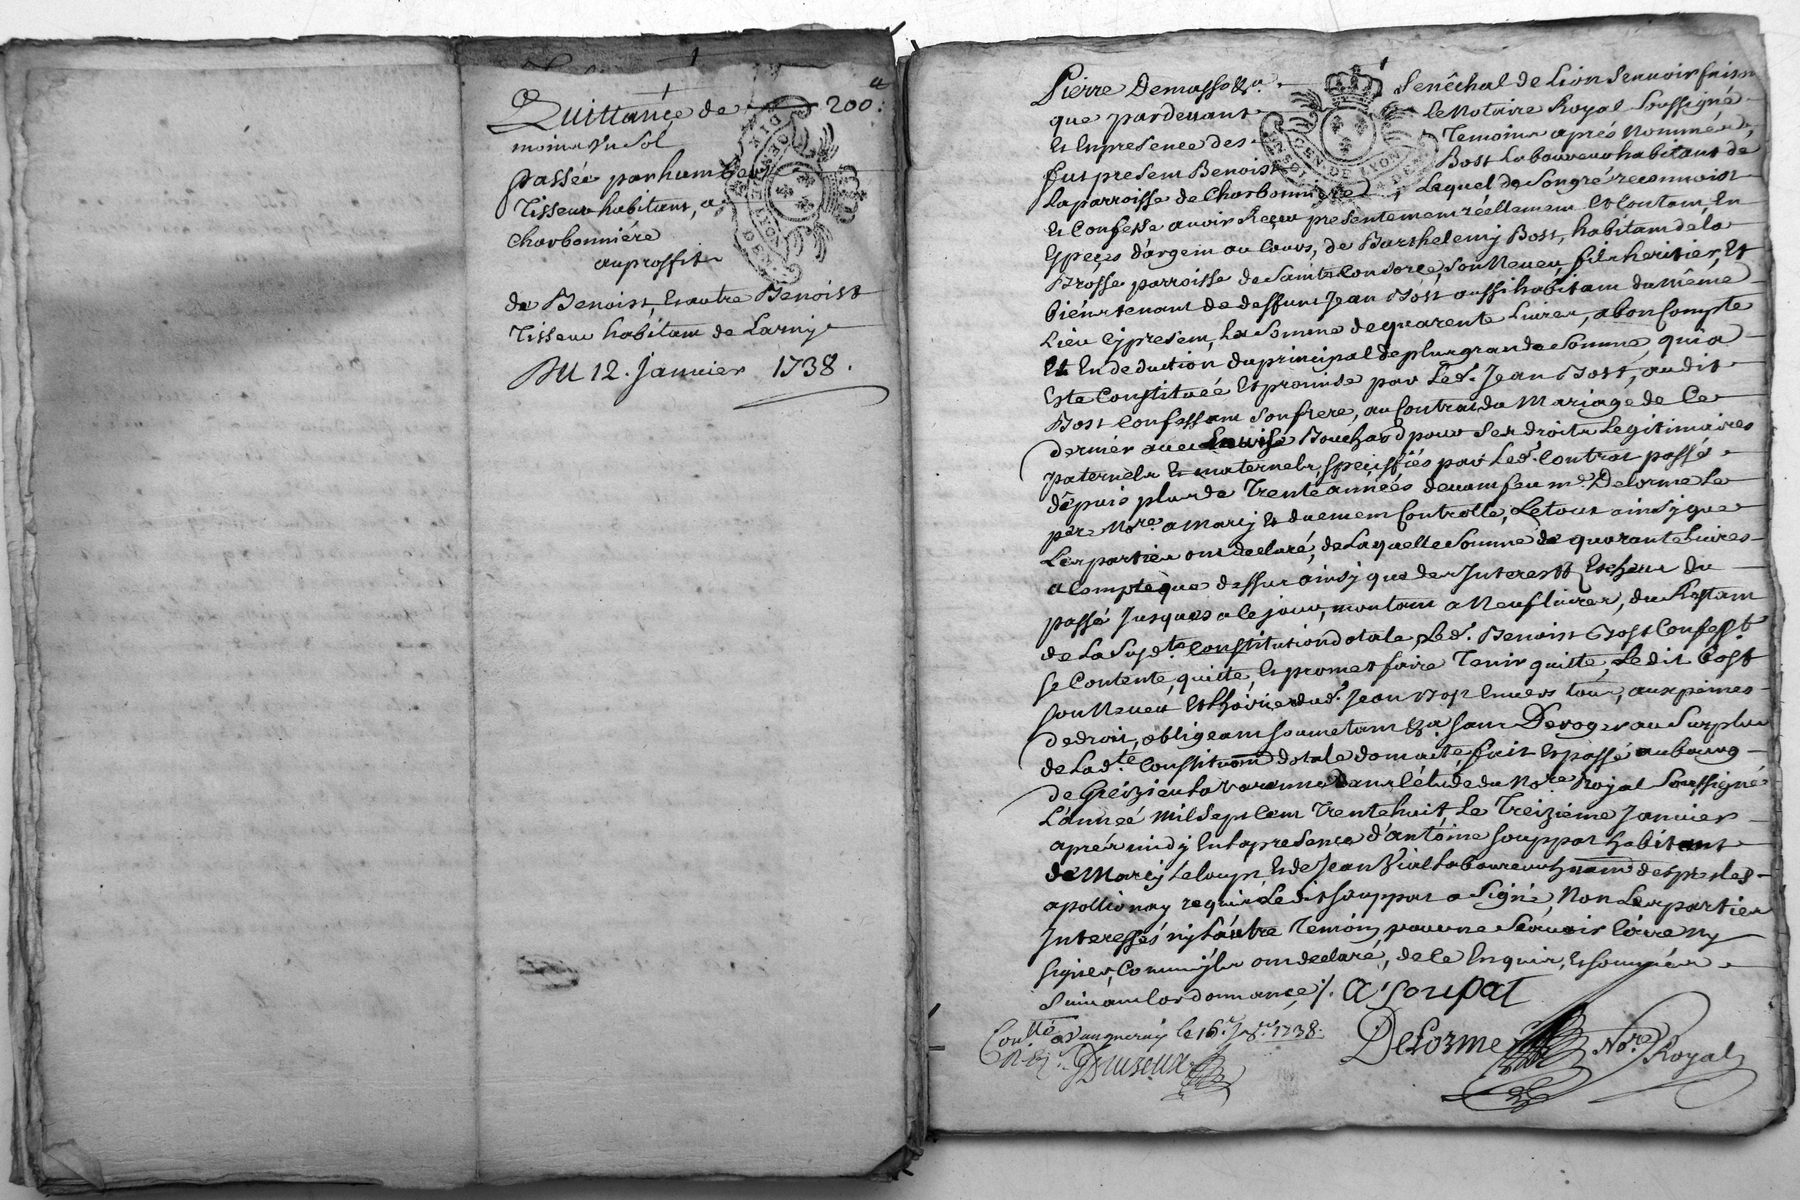 Quittance de 200ᵗᵗ
moins un sol
passée par humbert
Tisseur habitant, a
Charbonniére
au proffit
de Benoist, et autre Benoist
Tisseur habitant de Larny
Du 12. Janvier 1738.
Pierre Demasso &ᵃ. Senêchal de Lion Scavoir faison
que pardevant Le Notaire Royal Soussigné
Et En presence des Temoins aprés Nommés,
fut present Benoist Bost Laboureur habitant de
La parroisse de Charbonniere, Lequel de Son gré reconnoist
Et Confesse avoir Reçeu presentement réellement Et Contant, En
Espeçes d'argent au Cours, de Barthelemy Bost, habitant de la
Brosse parroisse de Sainte Consorce, Son Neveu, fils heritier, Et
biéns tenant de deffunt Jean Bost aussi habitant du même
Lieu Cy present, La Somme de quarente Livres, a bon Compte
Et En deduction du principal de plus grande Somme, qui a
Esté Constituéé Et promise par Led. Jean Bost, audit
Bost Confessant Son frere, au Contrat du Mariage de Ce
dernier avec Louise Bouchard pour Ses droits Legitimaires
paternels Et maternels, speçiffiés par Led. Contrat passé
dépuis plus de Trente annéés devant feu mᵉ. Delorme Le
pere Noʳᵉ. a Marcy Et duement Controllé, Le tout ainsy que
Les parties ont declaré, de Laquelle Somme de quarante Livres
a Compte que dessus ainsy que des Interestt Escheus du
passé Jusques a Ce jour, montant a Neuf livres, du Restant
de La Susdᵗᵉ Constitution dotale, Led. Benoist Bost Confessᵗ
Se Contente, quitte, Et promet faire Tenir quitte, Le dit Bost
Son Neveu Et hoirie dud. Jean Bost Envers tous, aux peines
de droit, obligeant Soumetant &ᵃ Sans Deroger au Surplus
de Ladᵗᵉ Constituõn dotale dont acte, fait Et passé au bourg
de Greizieu la varenne Dans l'étude du Noʳᵉ Royal Soussigné
L'annéé Mil Sept Cent Trente huit, Le Treiziéme Janvier
aprés midy En la presence d'antoine Souppat habitant
de Marcy Le loup, Et de Jean Vial Laboureur
requis Le dit Souppat a Signé, Non Les parties
Interessés ny L'autre Temoin pour ne Sçavoir Ecrire Ny
Signer, Comme ils ont declaré, de Ce Enquis, Et Sommés
Suivant Lordonnançe ./. A Soupat
Conᵗˡᵉ a Vaugneray le 16ᵉ Jᵉʳ 1738.
Delorme Noʳᵉ Royal